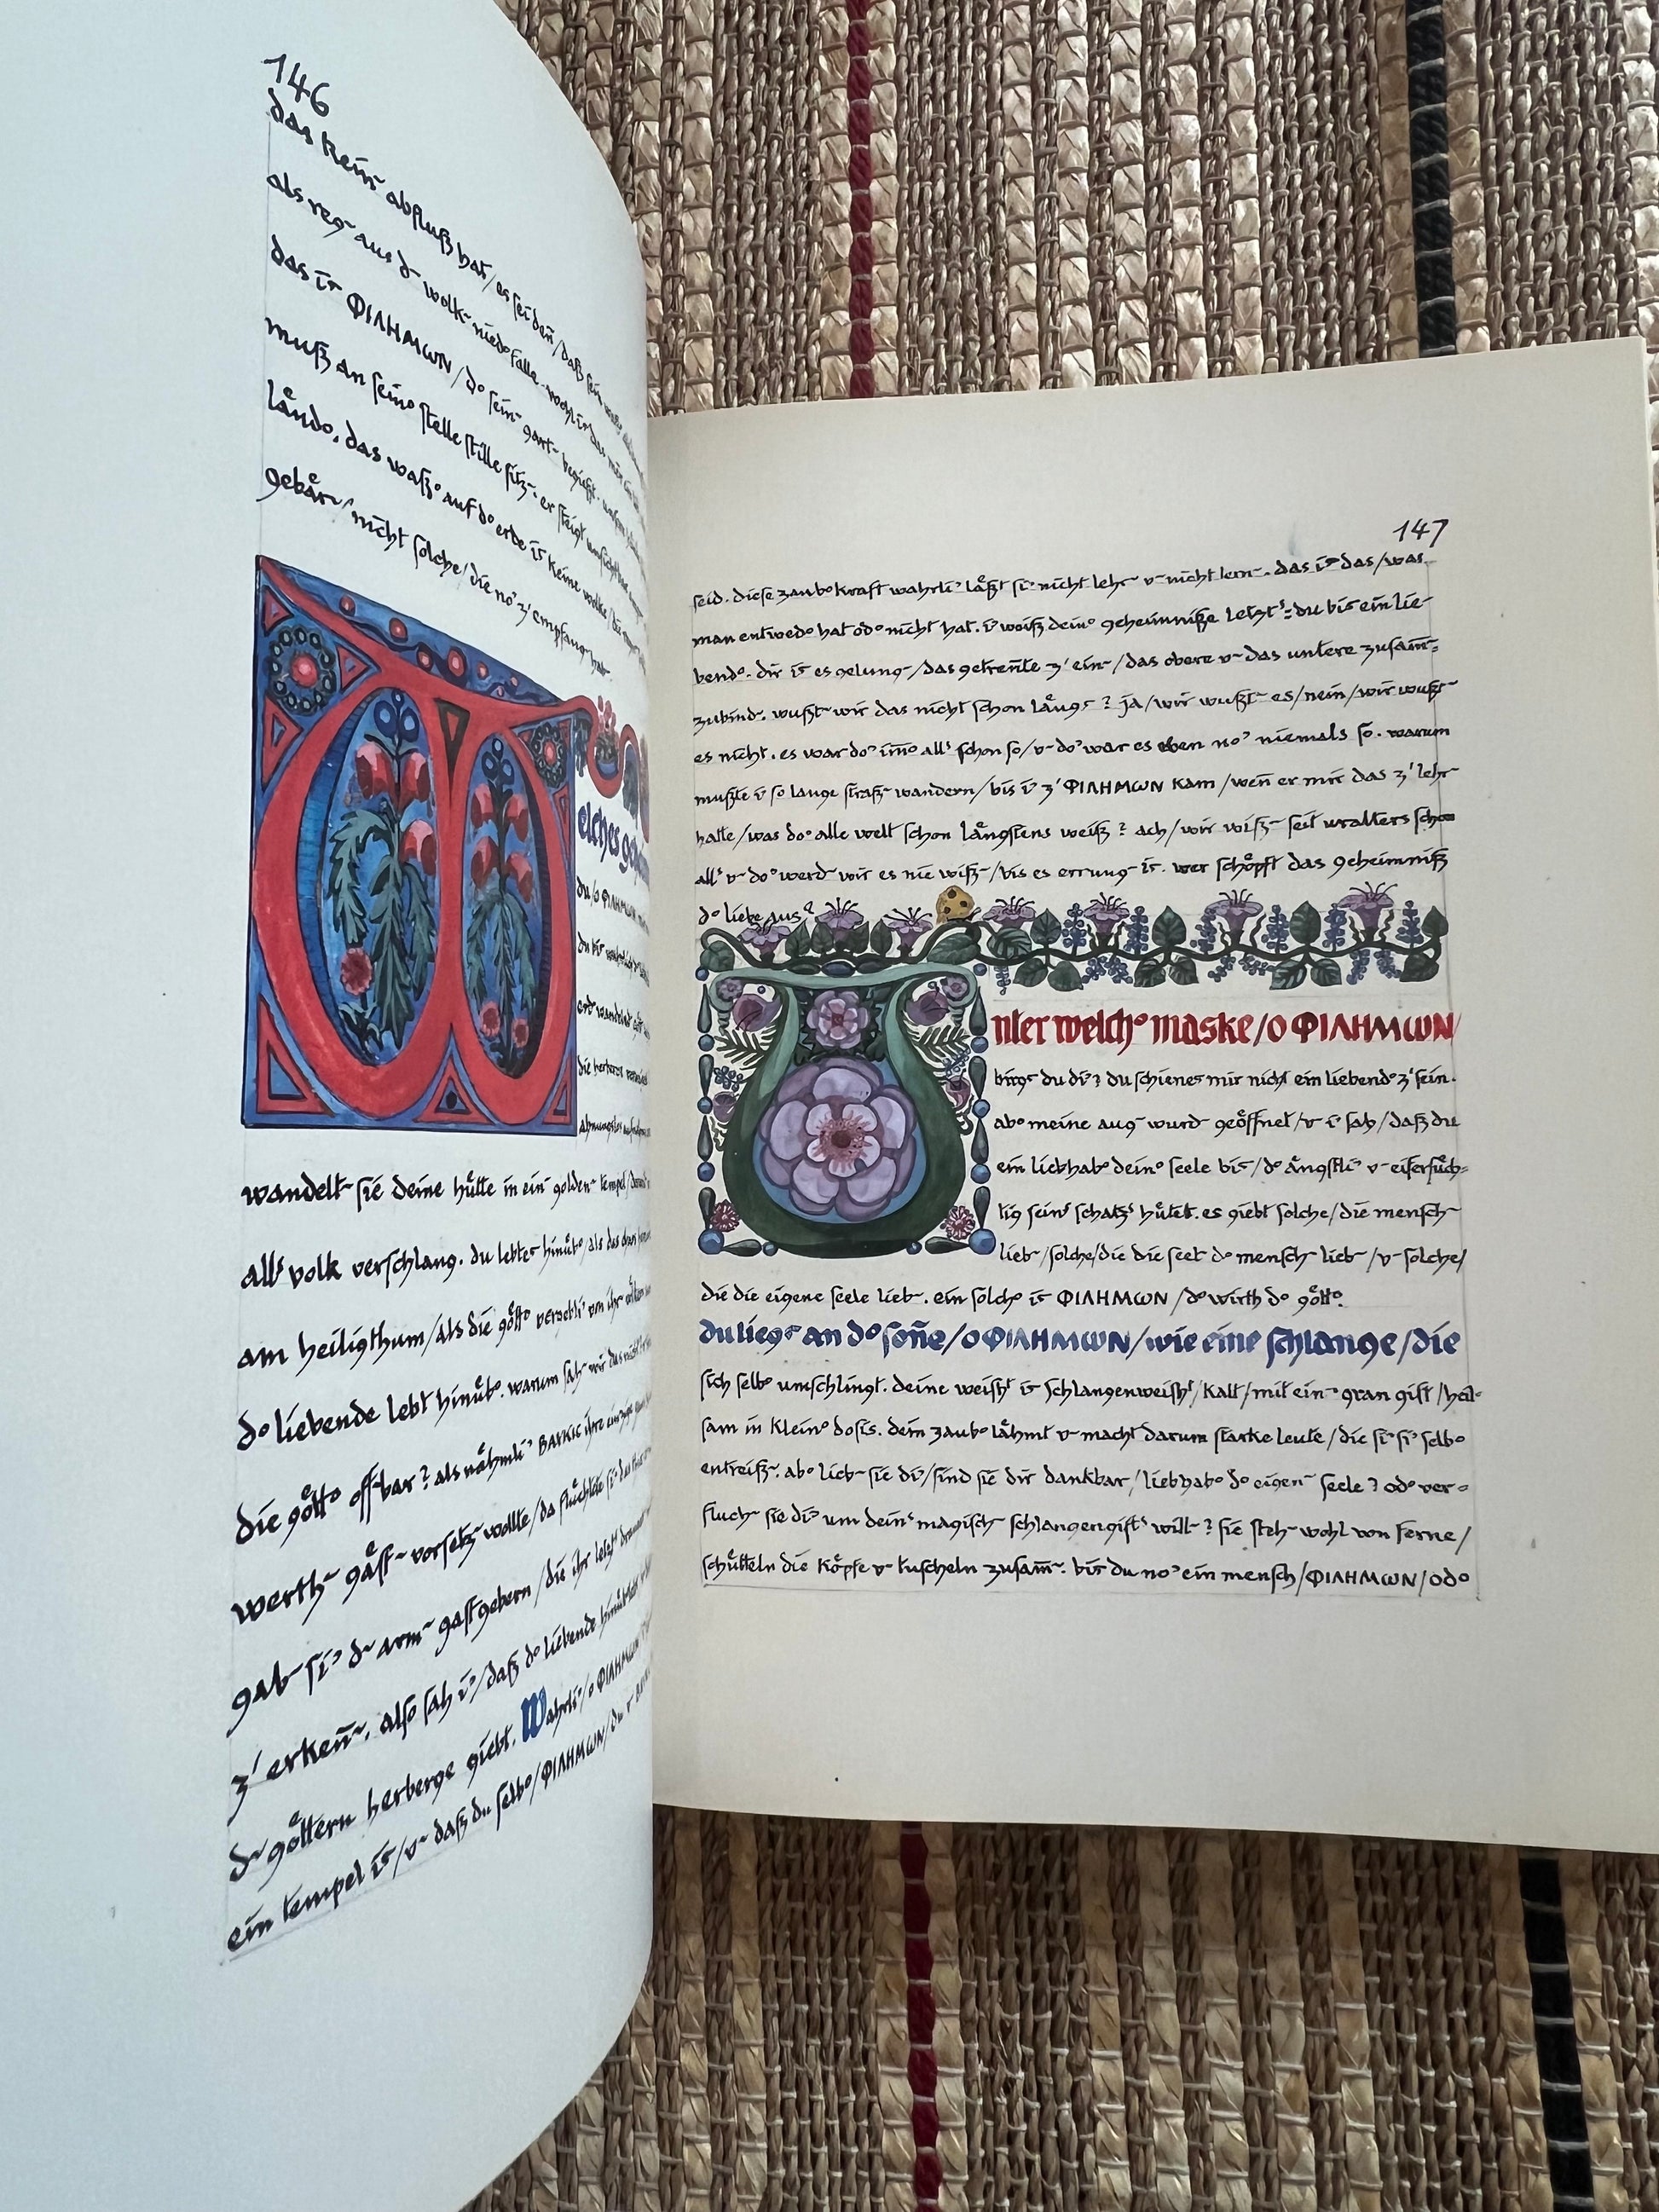 146
das kein~ abfluß hat / es sei den̄ / daß sein
als reg~ aus d~ wolk~ niedᵒ falle
das is ΦΙΛΗΜΩΝ / dᵒ sein~ gart~ begießt
muß an seinᵒ stelle stille sitz~. er steigt unsichtbar
låndᵒ. das waßᵒ auf dᵒ erde is keine wolke /
gebår~ / nicht solche / die noᵓ z' empfang~ hat
Welches
du / o ΦΙΛΗΜΩΝ
du bis
wandelt~ sie deine hůtte in ein~ golden~ tempel /
allˢ volk verschlang. du lebtes hinůbᵒ / als das
am heiligthum / als die gőttᵒ
dᵒ liebende lebt hinůbᵒ. warum sah~ wir das nicht
die gőttᵒ offbar? als nåhmliᵓ ΒΑΥΚΙΣ ihre einzige
werth~ gåst~ vorsetz~ wollte / da flůchtete siᵓ
gab~ siᵓ d~ arm~ gastgebern / die ihr letzt
z' erken̄~. also sah iᵓ / daß dᵒ liebende
d~ gőttern herberge giebt. Wahrliᵓ / o ΦΙΛΗΜΩΝ
ein tempel is / v~ daß du selbᵒ / ΦΙΛΗΜΩΝ / du
147
seid. diese zaubᵒkraft wahrliᵓ låßt siᵓ nicht lehr~ v~ nicht lern~. das is das / was
man entwedᵒ hat odᵒ nicht hat. iᵓ weiß deinᵒ geheimniße letztˢ: du bis ein lie-
bendᵒ. dir is es gelung~ / das getren̄te z' ein~ / das obere v~ das untere zusam̄=
zubind~. wußt~ wir das nicht schon långs? ja / wir wußt~ es / nein / wir wußt~
es nicht. es war doᵓ im̄ᵒ allˢ schon so / v~ doᵓ war es eben noᵓ niemals so. warum
mußte iᵓ so lange straß~ wandern / bis iᵓ z' ΦΙΛΗΜΩΝ kam / wen̄ er mir das z' lehr~
hatte / was doᵓ alle welt schon långstens weiß? ach / wir wiß~ seit uralters schon
allˢ v~ doᵓ werd~ wir es nie wiß~ / bis es errung~ is. wer schőpft das geheimniß
dᵒ liebe aus?
Unter welchᵒ maske / o ΦΙΛΗΜΩΝ /
birgs du diᵓ? du schienes mir nicht ein liebendᵒ z' sein.
abᵒ meine aug~ wurd~ geőffnet / v~ iᵓ sah / daß du
ein liebhabᵒ deinᵒ seele bis / dᵒ ångstliᵓ v~ eifersůch=
tig seinˢ schatzˢ hůtet. es giebt solche / die mensch~
lieb~ / solche / die die seel~ dᵒ mensch~ lieb~ / v~ solche /
die die eigene seele lieb~. ein solchᵒ is ΦΙΛΗΜΩΝ / dᵒ wirth dᵒ gőttᵒ.
du liegs an dᵒ son̄e / o ΦΙΛΗΜΩΝ / wie eine schlange / die
sich selbᵒ umschlingt. deine weisht is schlangenweisht / kalt / mit ein~ gran gift / heil-
sam in kleinᵒ dosis. dein zaubᵒ låhmt v~ macht darum starke leute / die siᵓ siᵓ selbᵒ
entreiß~. abᵒ lieb~ sie diᵓ / sind sie dir dankbar / liebhabᵒ dᵒ eigen~ seele? odᵒ ver=
fluch~ sie diᵓ um deinˢ magisch~ schlangengiftˢ will~? sie steh~ wohl von ferne /
schůtteln die kőpfe v~ tuscheln zusam̄~. bis du noᵓ ein mensch / ΦΙΛΗΜΩΝ / odᵒ